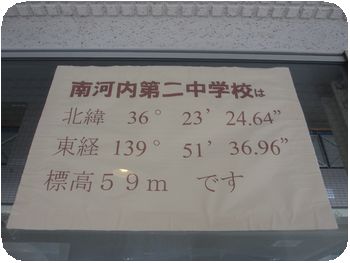 南河内第二中学校は
北緯 36° 23’ 24.64”
東経 139° 51’ 36.96”
標高59m です